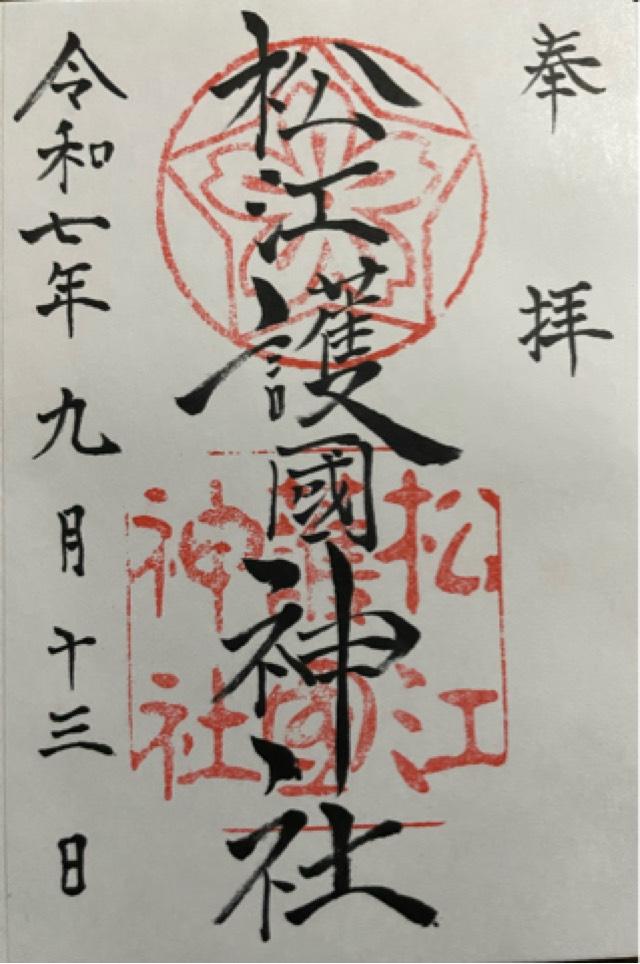 奉拝
松江護國神社
松江
護國
神社
令和七年九月十三日